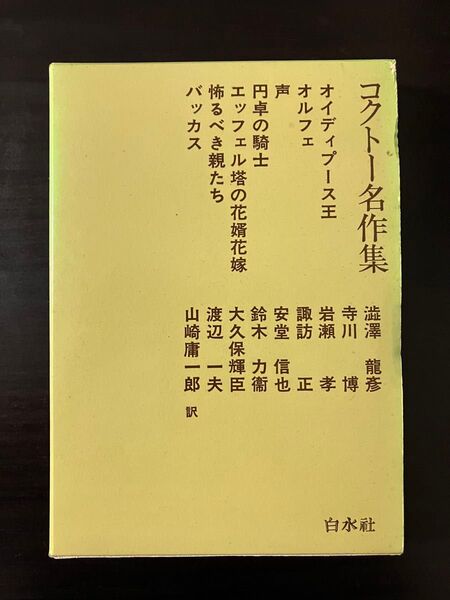 コクトー名作集
オイディプース王
オルフェ
声
円卓の騎士
エッフェル塔の花婿花嫁
怖るべき親たち
バッカス
澁澤 龍彥
寺川 博
岩瀬 孝
諏訪 正
安堂 信也
鈴木 力衞
大久保輝臣
渡辺 一夫
山崎庸一郎
訳
白水社